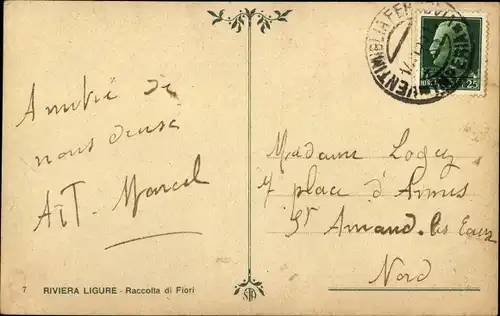 Amitié de
nous deux
A et Marcel
7 RIVIERA LIGURE - Raccolta di Fiori
VENTIMIGLIA
25
STA
Madame
7 place d'Armes
St Amand-les Eaux
Nord